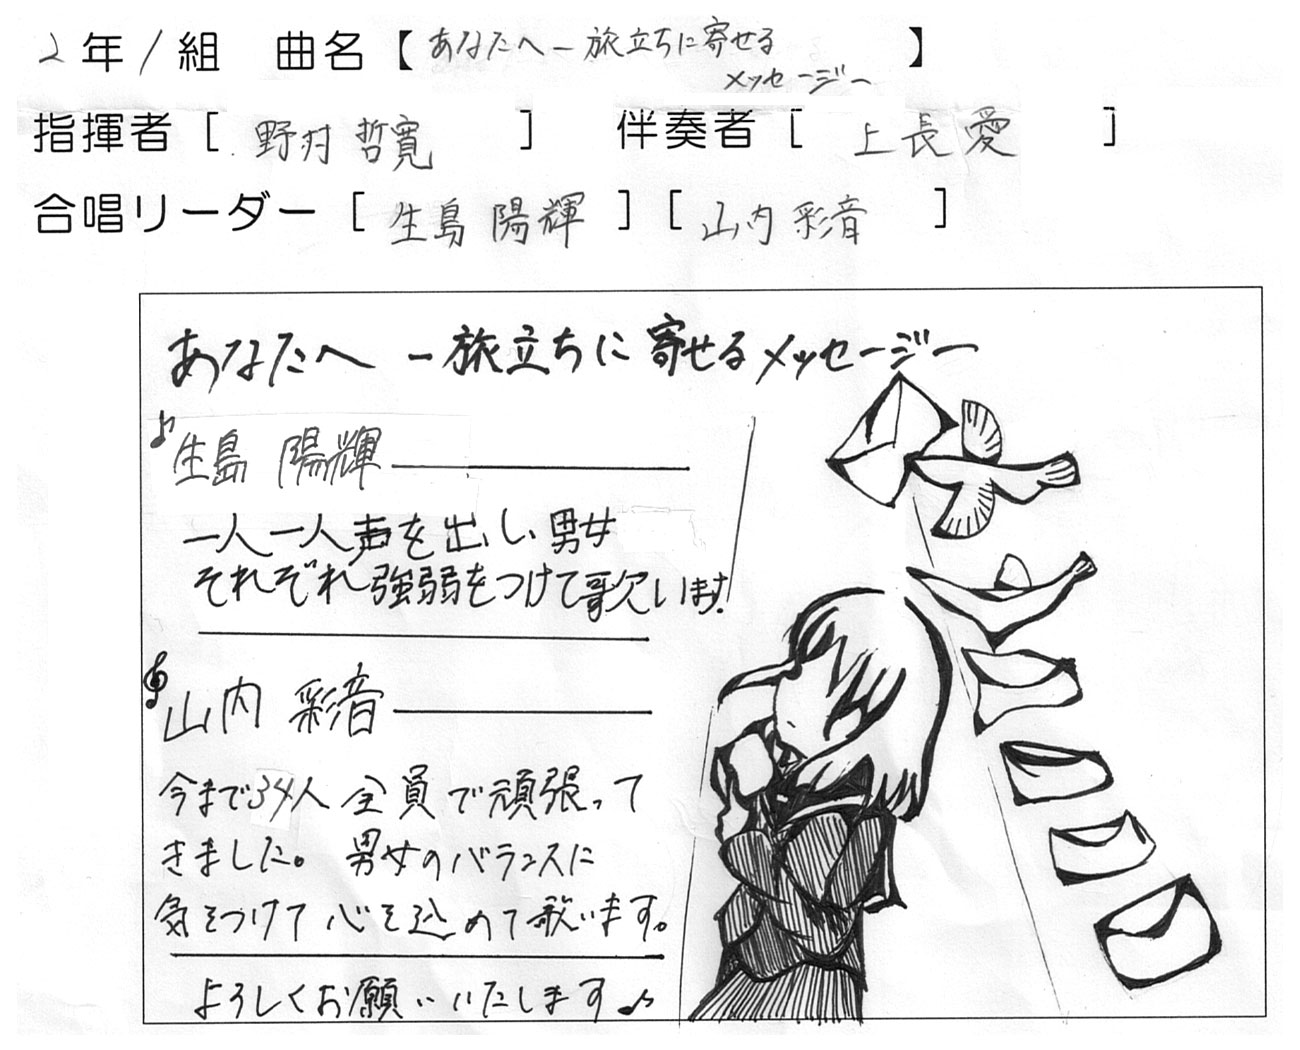 2年1組 曲名【あなたへ－旅立ちに寄せる
メッセージー】
指揮者［野村 哲寛］ 伴奏者［上長 愛］
合唱リーダー［生島 陽輝］［山内 彩音］
あなたへ －旅立ちに寄せるメッセージー
♪生島 陽輝
一人一人声を出し、男女
それぞれ強弱をつけて歌います！
山内 彩音
今まで34人全員で頑張って
きました。男女のバランスに
気をつけて心を込めて歌います。
よろしくお願いいたします♪